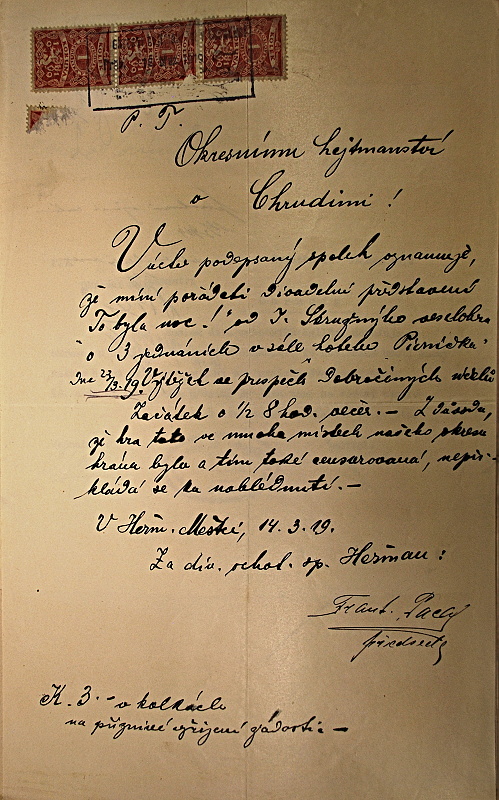 P. T.
Okresnímu hejtmanství
v
Chrudimi!
Úctě podepsaný spolek oznamuje,
že míní pořádati divadelní představení
"To byla noc!" od J. Skružného veselohra
o 3 jednáních v sále hotelu
Dne 23/3.19. Výtěžek ve prospěch dobročinných účelů
Začátek o 1/2 8 hod. večer. – Z důvodu,
že hra tato ve mnoha místech našeho okresu
hrána byla a tím také censurovaná, nepři-
kládá se ku nahlédnutí. –
V Heřm. Městci, 14.3.19.
Za div. ochot. sp. Heřman:
Frant.
předseda
K. 3.– v kolkách
na příznivé vyřízení žádosti –